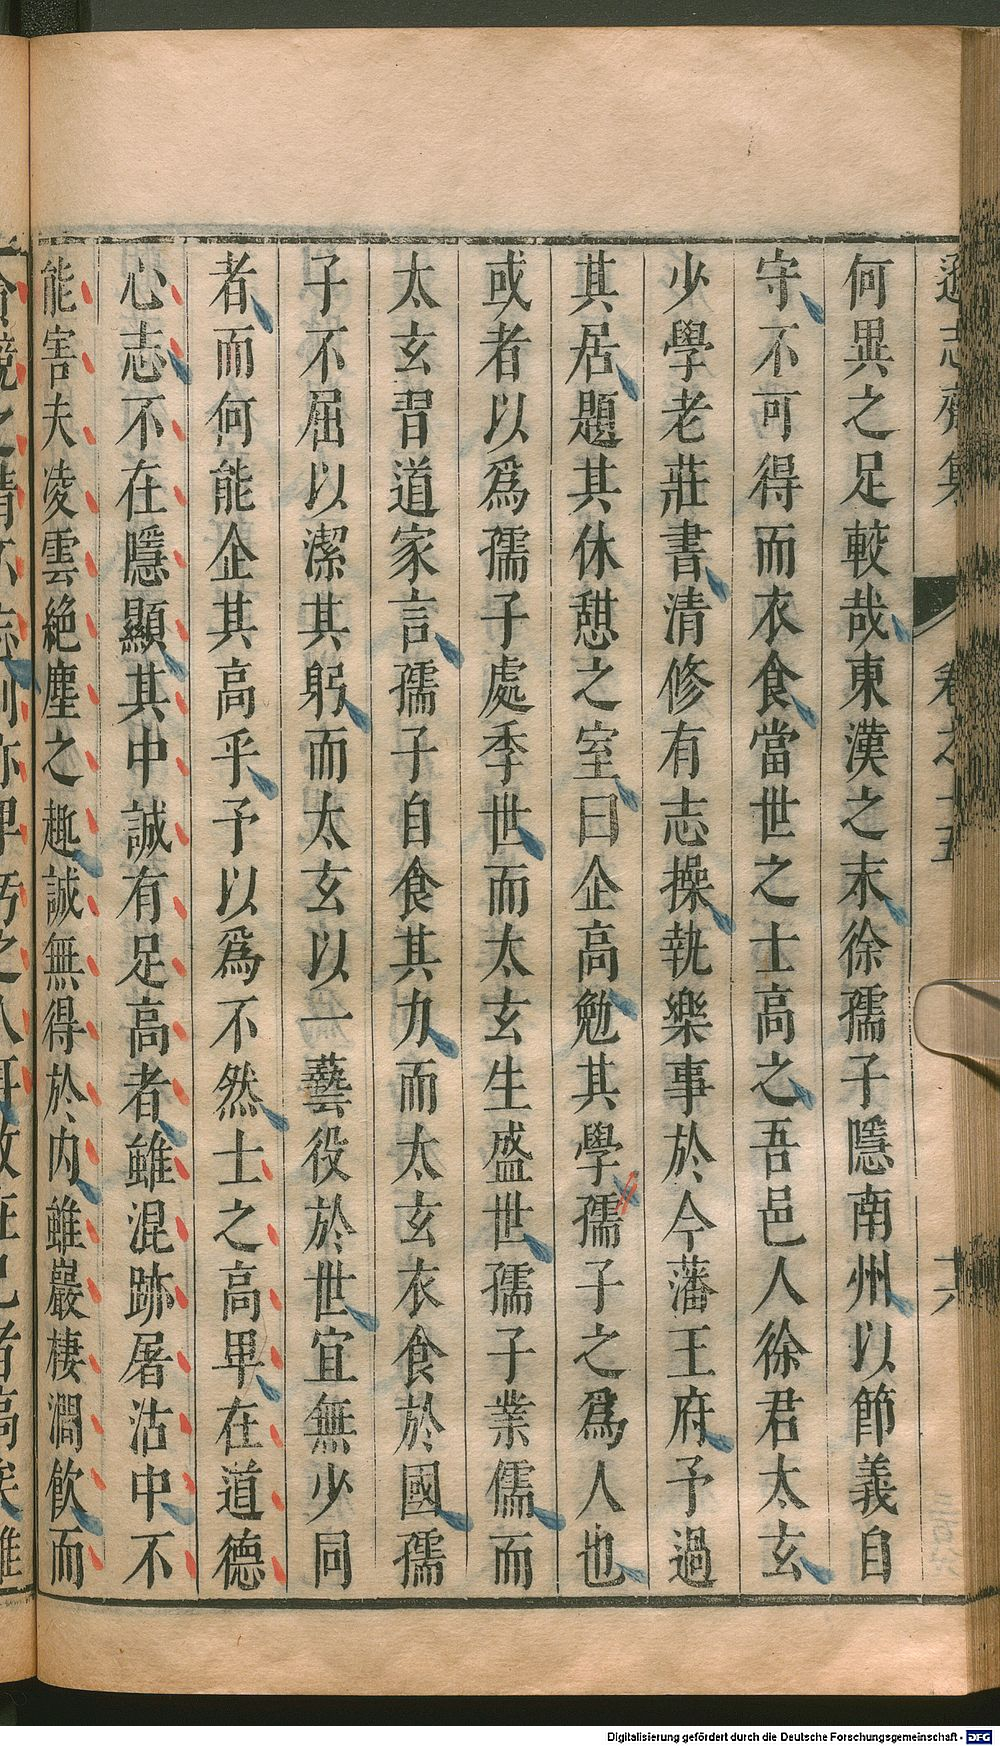 遜志齋集 卷之十五 十六
何異之足較哉東漢之末徐孺子隱南州以節義自
守不可得而衣食當世之士高之吾邑人徐君太玄
少學老莊書清修有志操執樂事於今藩王府予過
其居題其休憩之室曰企高勉其學孺子之爲人也
或者以爲孺子處季世而太玄生盛世孺子業儒而
太玄習道家言孺子自食其力而太玄衣食於國孺
子不屈以潔其躬而太玄以一藝役於世宜無少同
者而何能企其高乎予以爲不然士之高畢在道德
心志不在隱顯其中誠有足高者雖混跡屠沽中不
能害夫凌雲絶塵之趣誠無得於内雖巖棲澗飲而
Digitalisierung gefördert durch die Deutsche Forschungsgemeinschaft - DFG